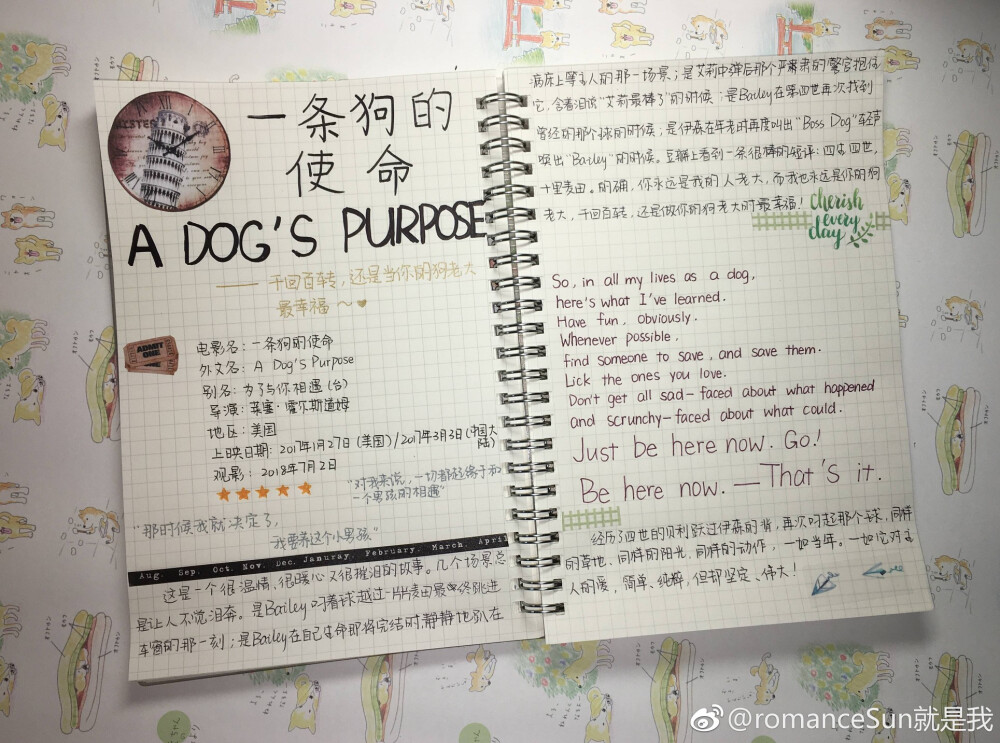 一条狗的
使命
A DOG'S PURPOSE
—— 千回百转，还是当你的狗老大
最幸福～
ADMIT
ONE
电影名：一条狗的使命
外文名：A Dog's Purpose
别名：为了与你相遇（台）
导演：莱塞·霍尔斯道姆
地区：美国
上映日期：2017年1月27日（美国）/2017年3月3日（中国大
陆）
观影：2018年7月2日
"对我来说，一切都起缘于和
一个男孩的相遇"
"那时候我就决定了，
我要养这个小男孩"
Aug. Sep. Oct. Nov. Dec. Januray. February. March. April
这是一个很温情、很暖心又很催泪的故事。几个场景总
是让人不觉泪奔。是Bailey叼着球越过一片片麦田最终跳进
车窗的那一刻；是Bailey在自己生命即将完结时静静地趴在
病床上等主人的那一场景；是艾莉中弹后那个严肃的警官抱住
它，含着泪说"艾莉最棒了"的时候；是Bailey在第四世再次找到
曾经的那个球的时候；是伊森在年老时再度叫出"Boss Dog"轻声
唤出"Bailey"的时候。豆瓣上看到一条很棒的短评：四生四世，
十里麦田。的确，你永远是我的人老大，而我也永远是你的狗
老大，千回百转，还是做你的狗老大时最幸福！
Cherish
every
day
So, in all my lives as a dog,
here's what I've learned.
Have fun, obviously.
Whenever possible,
find someone to save, and save them.
Lick the ones you love.
Don't get all sad-faced about what happened
and scrunchy-faced about what could.
Just be here now. Go!
Be here now. —That's it.
经历了四世的贝利跃过伊森的背，再次叼起那个球，同样
的草地、同样的阳光、同样的动作，一如当年。一如它对主
人的爱，简单、纯粹，但却坚定、伟大！
@romanceSun就是我